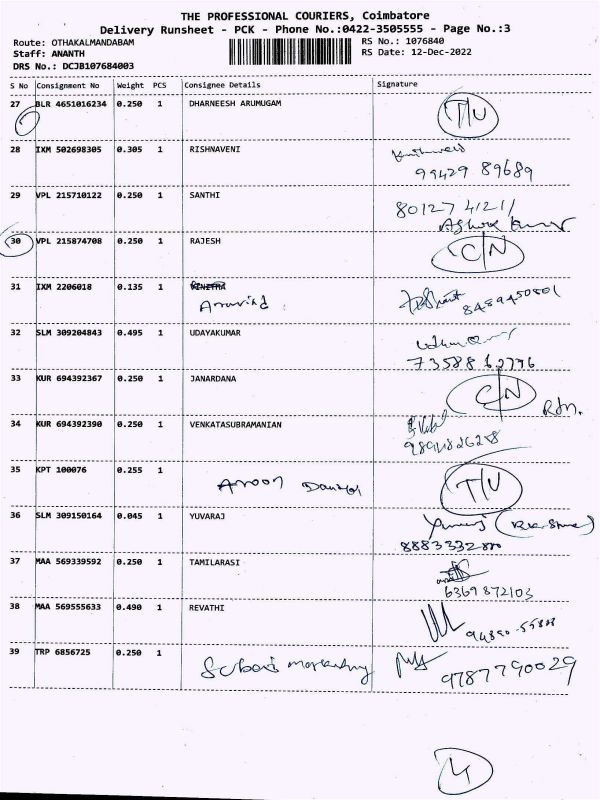 THE PROFESSIONAL COURIERS, Coimbatore
Delivery Runsheet - PCK - Phone No.:0422-3505555 - Page No.:3
Route: OTHAKALMANDABAM
RS No.: 1076840
Staff: ANANTH
RS Date: 12-Dec-2022
DRS No.: DCJB107684003
S No Consignment No Weight PCS Consignee Details Signature
27 BLR 4651016234 0.250 1 DHARNEESH ARUMUGAM T/U
28 IXM 502698305 0.305 1 RISHNAVENI
99429 89689
29 VPL 215710122 0.250 1 SANTHI
80127 41211
Ashok Kumar
30 VPL 215874708 0.250 1 RAJESH C/N
31 IXM 2206018 0.135 1 VINITHA
Aravind
8489450801
32 SLM 309204843 0.495 1 UDAYAKUMAR
33 KUR 694392367 0.250 1 JANARDANA C/N
34 KUR 694392390 0.250 1 VENKATASUBRAMANIAN
35 KPT 100076 0.255 1 T/U
Aroon Daniel
36 SLM 309150164 0.045 1 YUVARAJ
37 MAA 569339592 0.250 1 TAMILARASI
6369872103
38 MAA 569555633 0.490 1 REVATHI
39 TRP 6856725 0.250 1
9787790029
4